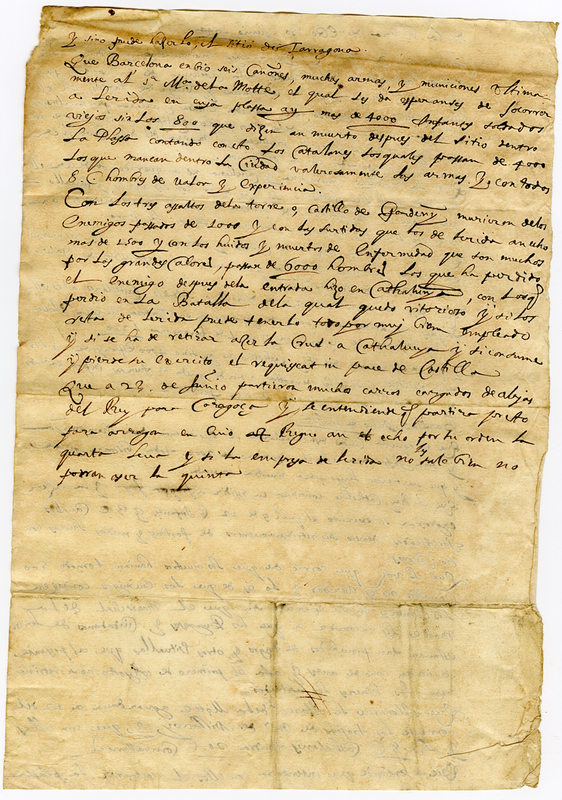 y sino puede haserlo, el sitio de Tarragona.
Que Barcelona enbio seis Cañones, muchas armas, y municiones Ultima
mente al sr Ma. de la Motte, el qual les da speranses de Socorrer
a Lerida en cuya plassa ay mes de 4000 Infantes soldados
viejos sin los 800 que dizen an muerto despues del Sitio dentro
la Plassa contando con esto los Catalanes los quales passan de 4000
los que manean dentro la Ciudad valerosamente las armas y con todos
8. C. hombres de valor y experiencia.
Con los tres assaltos de la torre o, castillo de Gardeny murieron de los
Enemigos passados de 1000 y con las surtidas que los de lerida an echo
mas de 1500 y con los huidos y muertos de Enfermedad que son muchos
por los grandes Calores, passan de 6000 hombres los que ha perdido
el Enemigo despues dela entrada hizo en Cathaluña, con los q
perdio en La Batalla dela qual quedo vitorioso y si los
resta de lerida puede tenerlo todo por muy bien empleado
y si se ha de retirar aser la Cruz a Cathaluuya y si consume
y pierde su exercito el requiscat in pace de Castilla
Que a 27. de Junio partieron muchos carros cargados de alajas
del Rey para Caragoça y se entendiende q partira presto
para arragon en Cuio Regne an echo por su orden la
quarta leva y si la empresa de lerida no salo bien no
podran aser la quinta